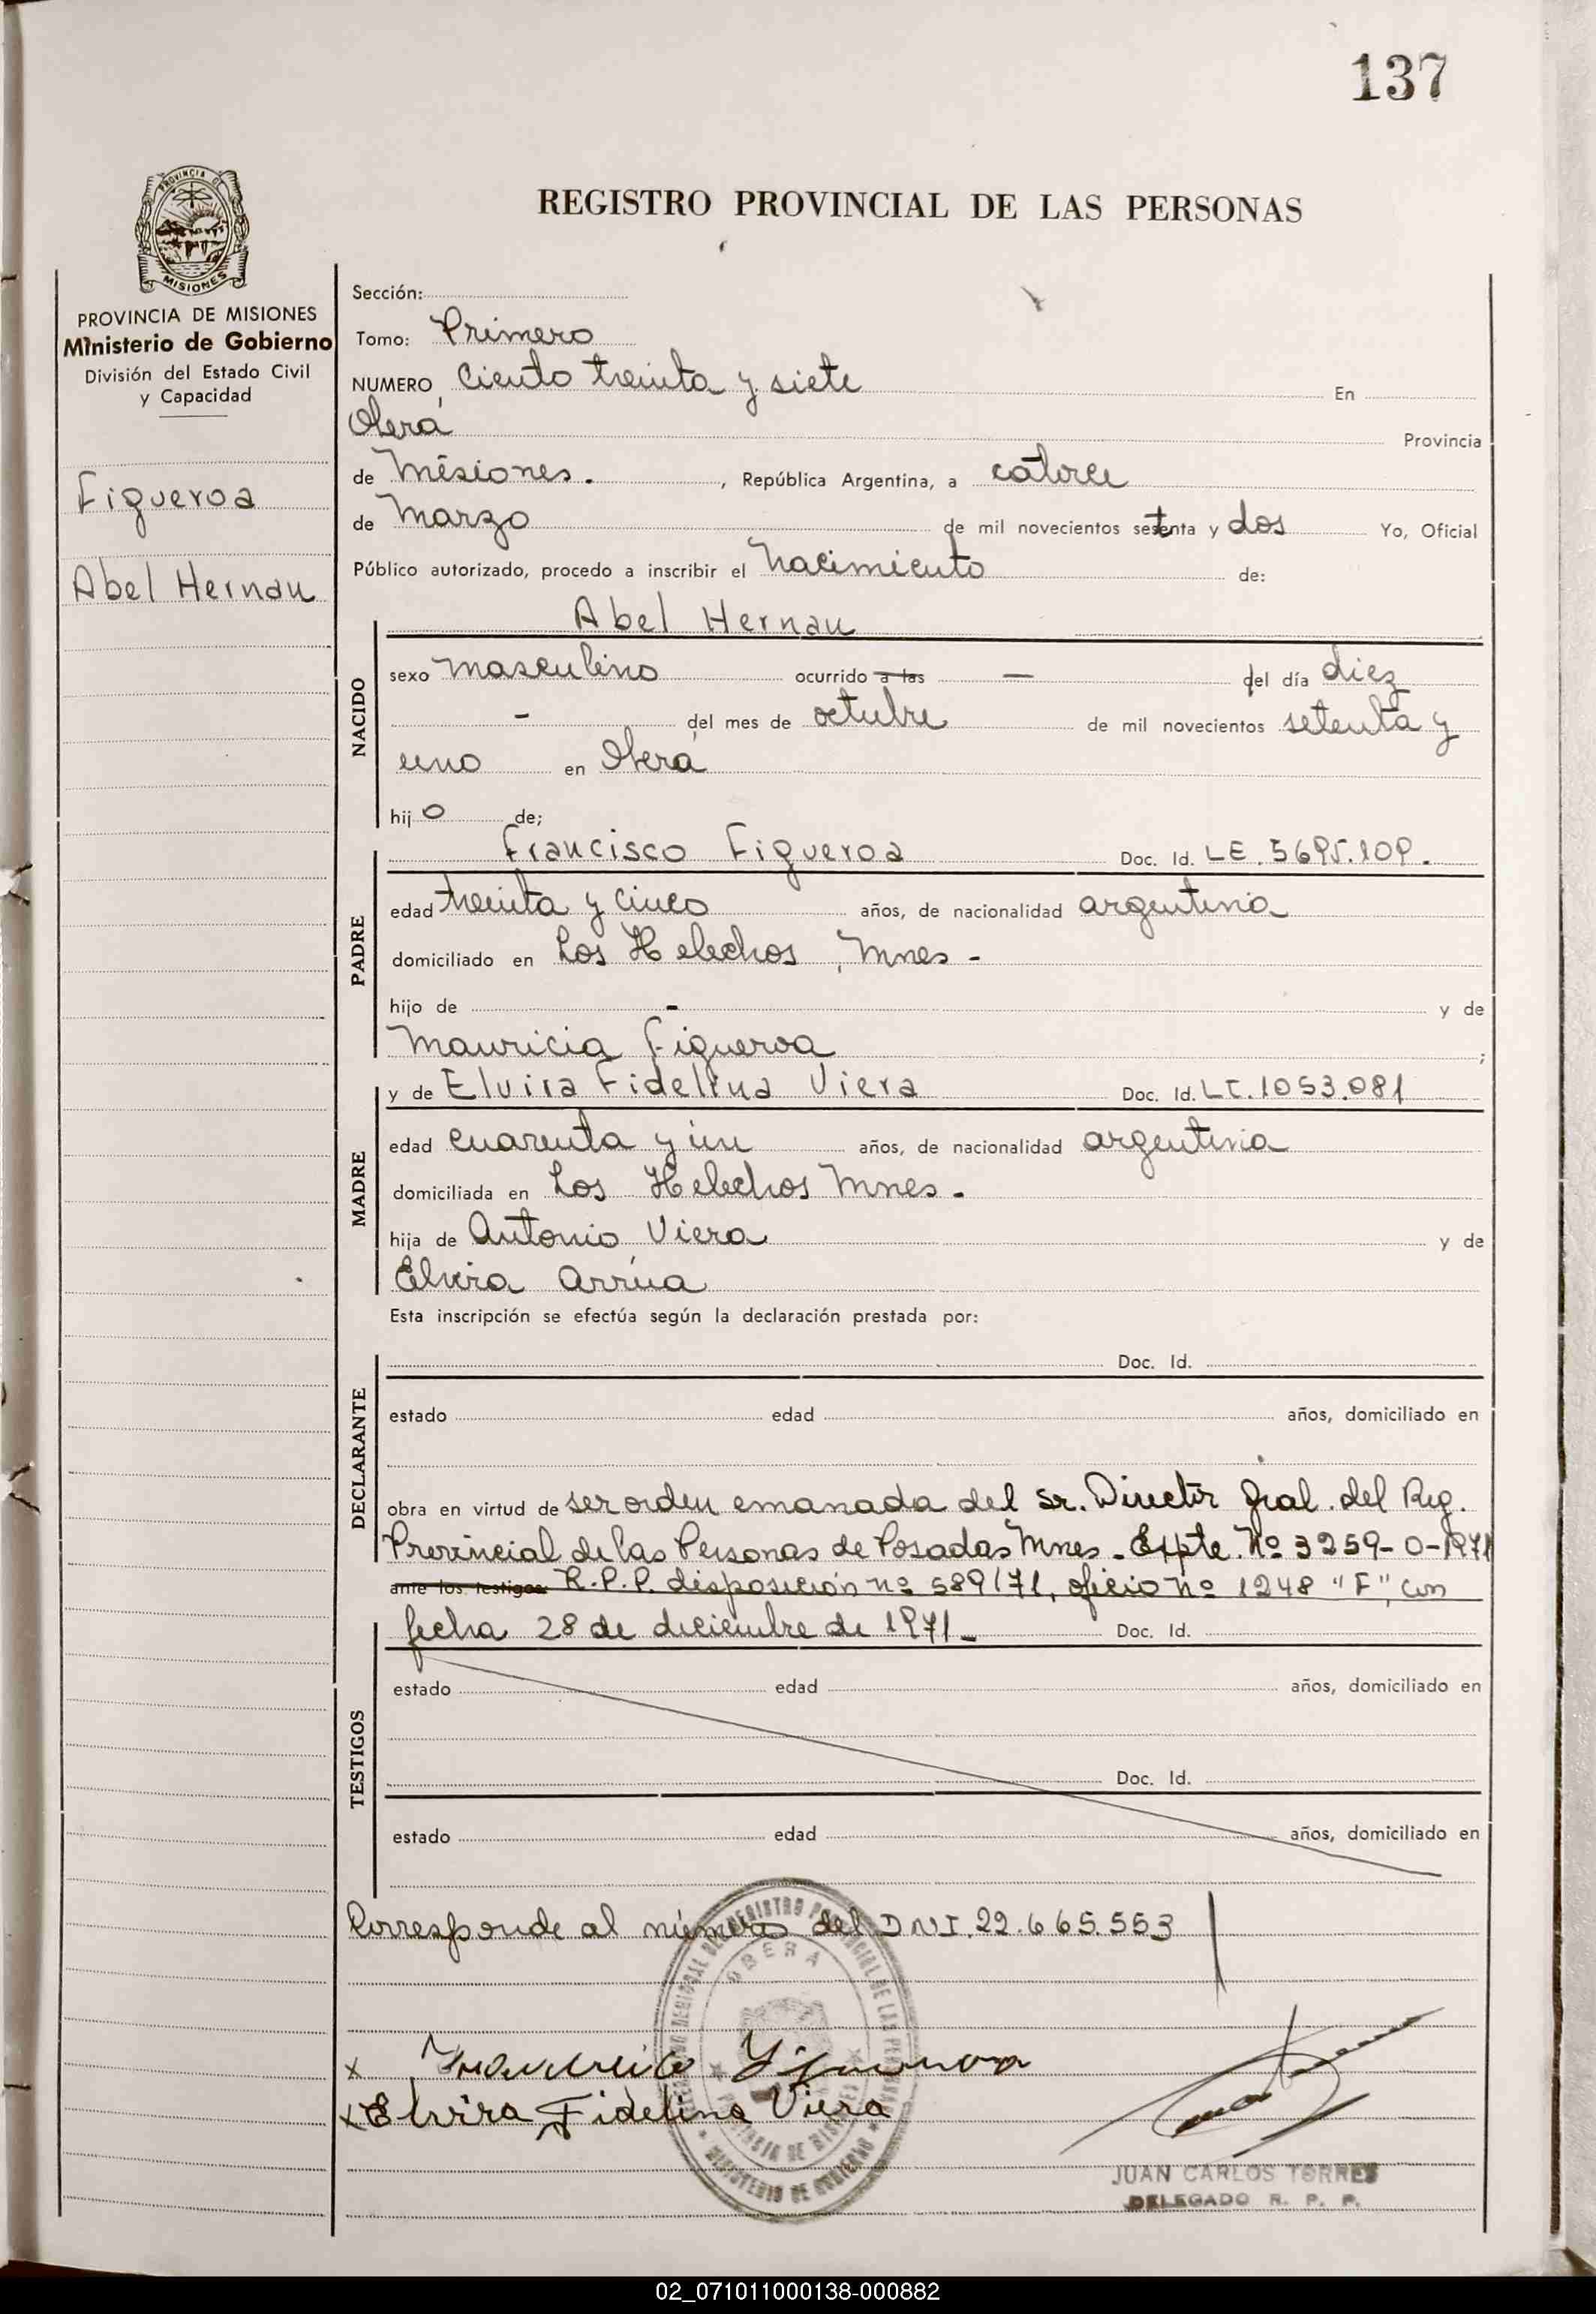 137
PROVINCIA DE
MISIONES
REGISTRO PROVINCIAL DE LAS PERSONAS
PROVINCIA DE MISIONES
Ministerio de Gobierno
División del Estado Civil
y Capacidad
Figueroa
Abel Hernan
Sección:
Tomo: Primero
NUMERO, Ciento treinta y siete En
Oberá Provincia
de Misiones. , República Argentina, a catorce
de Marzo de mil novecientos setenta y dos Yo, Oficial
Público autorizado, procedo a inscribir el Nacimiento de:
Abel Hernan
NACIDO
sexo masculino ocurrido a las — del día diez
- del mes de octubre de mil novecientos setenta y
uno en Oberá
hijo de;
Francisco Figueroa Doc. Id. LE. 5695.109.
PADRE
edad treinta y cinco años, de nacionalidad argentina
domiciliado en Los Helechos, Mnes -
hijo de - y de
Mauricia Figueroa ;
y de Elvira Fidelina Viera Doc. Id. LC. 1053.081
MADRE
edad cuarenta y un años, de nacionalidad argentina
domiciliada en Los Helechos Mnes.
hija de Antonio Viera y de
Elvira Arrua
Esta inscripción se efectúa según la declaración prestada por:
Doc. Id.
DECLARANTE
estado edad años, domiciliado en
obra en virtud de ser orden emanada del Sr. Director Gral. del Reg.
Provincial de las Personas de Posadas Mnes. Expte. Nº 3259-0-1971
ante los testigos: R.P.P. disposición nº 589/71, oficio nº 1248 "F", con
fecha 28 de diciembre de 1971_ Doc. Id.
TESTIGOS
estado edad años, domiciliado en
Doc. Id.
estado edad años, domiciliado en
Corresponde al número del DNI. 22.665.553
OBERA
x Francisco Figueroa
x Elvira Fidelina Viera
MINISTERIO DE GOBIERNO
JUAN CARLOS TORRES
DELEGADO R. P. P.
02_071011000138-000882